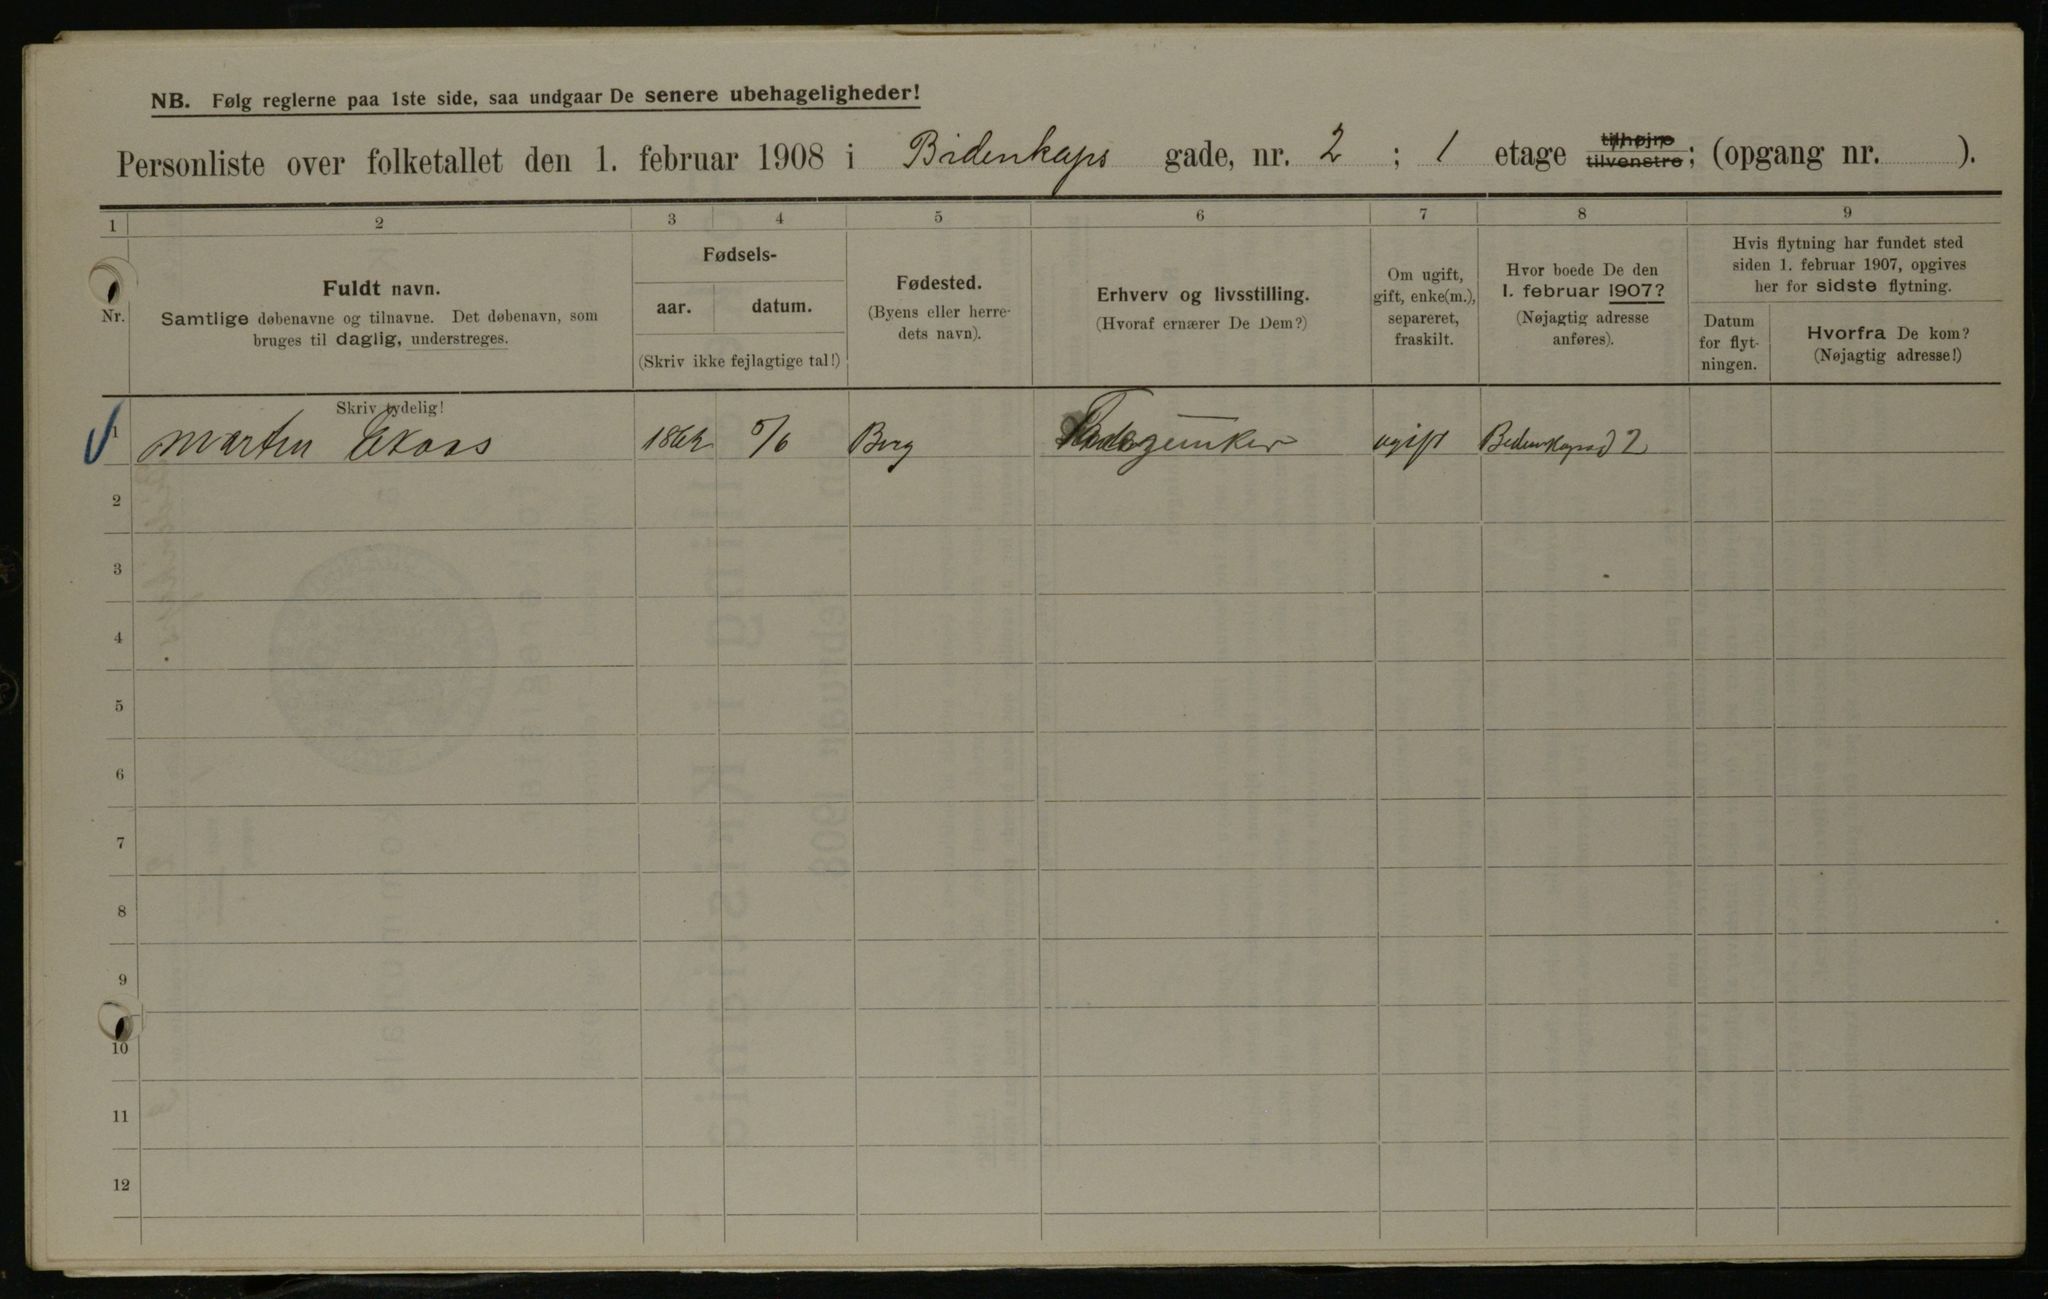 NB. Følg reglerne paa 1ste side, saa undgaar De senere ubehageligheder!
Personliste over folketallet den 1. februar 1908 i Bidenkaps gade, nr. 2 ; 1 etage tilhøjre tilvenstre; (opgang nr. ).
1 2 3 4 5 6 7 8 9
Nr.
Fuldt navn.
Samtlige døbenavne og tilnavne. Det døbenavn, som
bruges til daglig, understreges.
Fødsels-
aar. datum.
(Skriv ikke fejlagtige tal!)
Fødested.
(Byens eller herre-
dets navn).
Erhverv og livsstilling.
(Hvoraf ernærer De Dem?)
Om ugift,
gift, enke(m.),
separeret,
fraskilt.
Hvor boede De den
1. februar 1907?
(Nøjagtig adresse
anføres).
Hvis flytning har fundet sted
siden 1. februar 1907, opgives
her for sidste flytning.
Datum
for flyt-
ningen.
Hvorfra De kom?
(Nøjagtig adresse!)
Skriv tydelig!
1 Martin 1862 5/6 Berg ugift 2
2
3
4
5
6
7
8
9
10
11
12